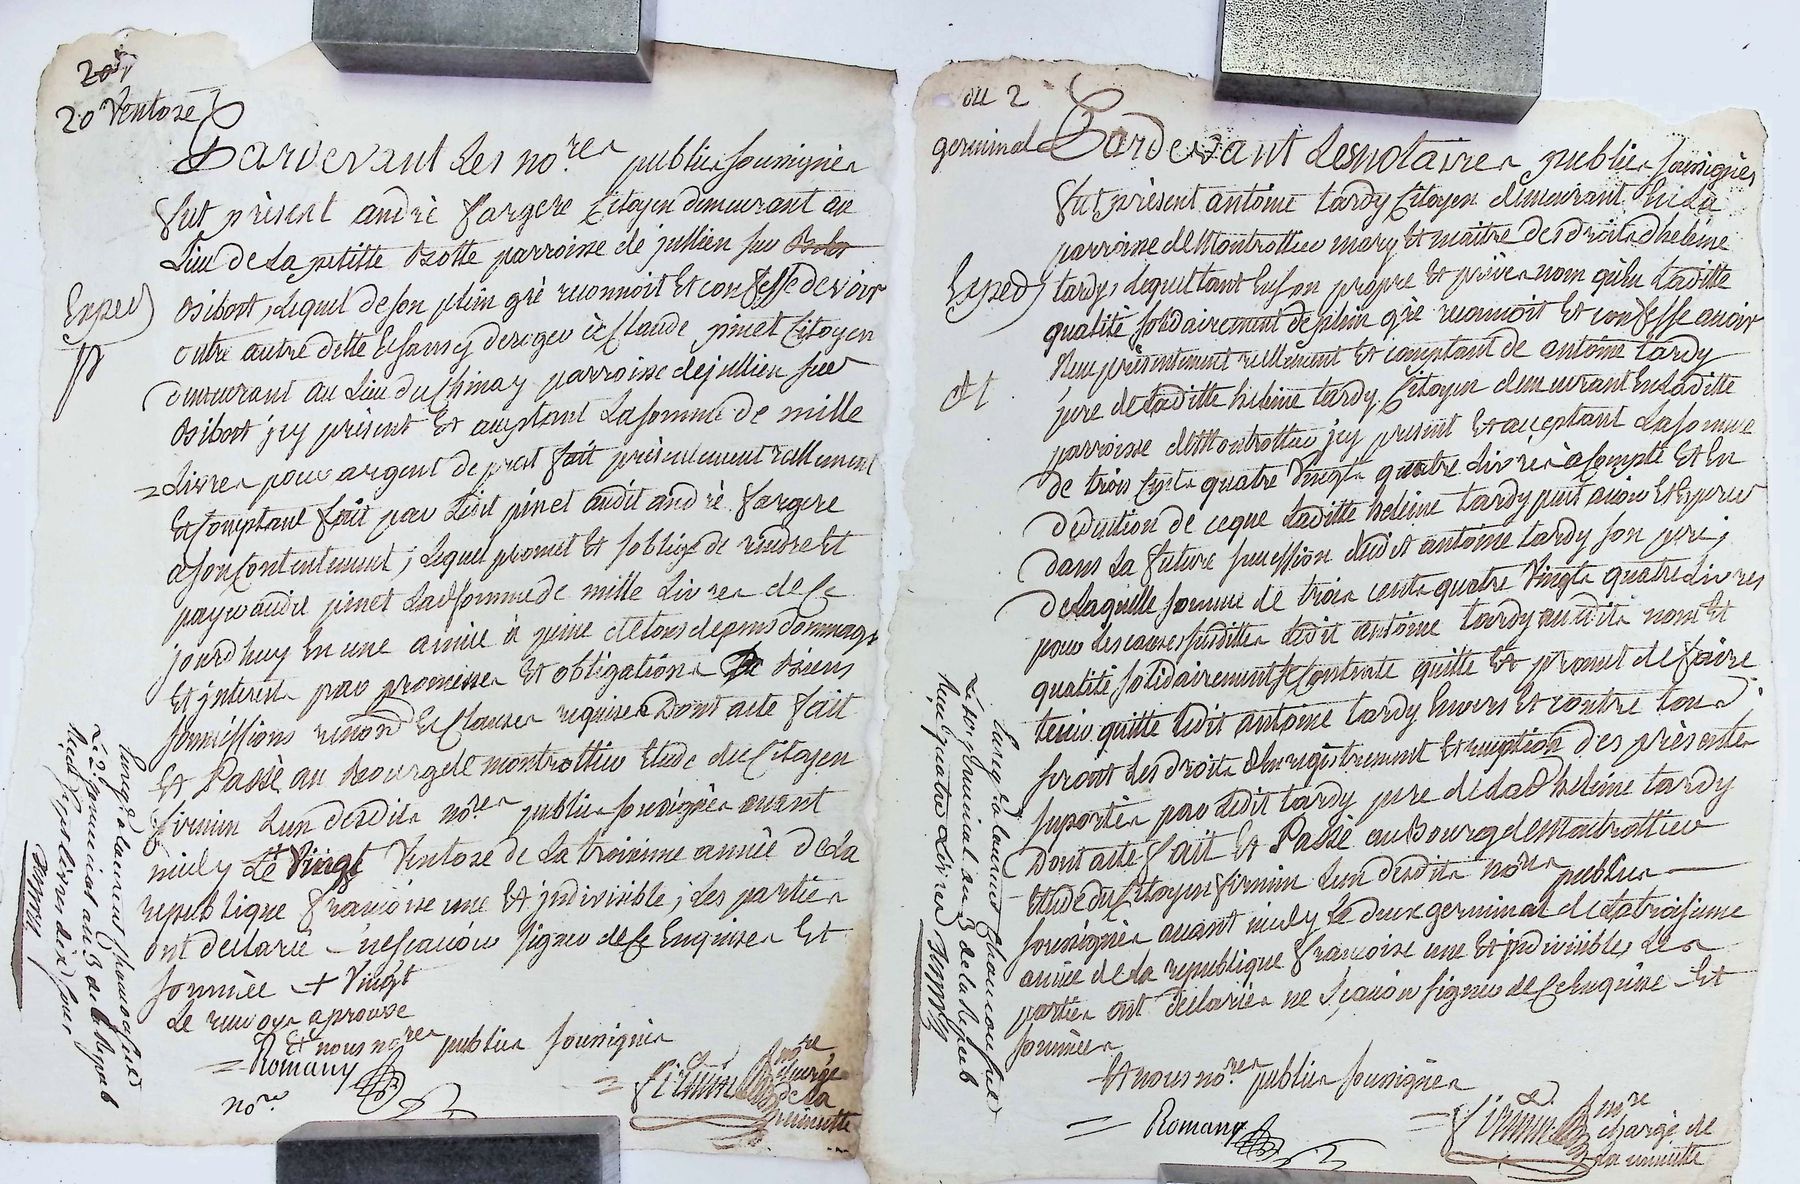 20
20 Ventose
Pardevant Les no.res publics soussignés
fut présent andré fargere Citoyen demeurant au
Lieu de La petitte parroisse de jullien sur
Bibost, Lequel de son plein gré reconnoit Et confesse devoir
outre autre dette Et sans y deroger à Claude pinet Citoyen
demeurant au Lieu du Chinay parroisse de jullien sur
Bibost jcy présent Et aceptant La somme de mille
Livres pour argent de prest fait présentement réellement
Et comptant fait par Ledit pinet audit andré fargere
a son contentement; Lequel promet Et soblige de rendre Et
payer audit pinet Lad. somme de mille Livres de ce
jourdhuy En une année à peine de tous depens dommages
Et jnterests par promesses Et obligations De Biens
soumissions renond Et Clauses requises Dont acte fait
Et Passé au Bourg de montrottier Etude du Citoyen
firmin Lun desdits no.res publics soussignés avant
midy Le Vingt Ventose de La troisieme année de La
republique francoise une Et jndivisible; Les parties
ont declaré ne scavoir signer de ce Enquises Et
sommées + Vingt
Le renvoy aprouvé
Et nous no.res publics soussignés
= Romany
no.re
= firmin no.re
chargé
de La
minutte
Exped)
Enreg.é a Laurent Chamousset
Le 2. germinal an 3 de la Repub
Reçu sept Livres dix sous
Romany
du 2
germinal
Pardevant Les notaires publics soussignés
fut présent antoine tardy Citoyen demeurant En La
parroisse de Montrottier mary Et maitre des droits dheleine
tardy, Lequel tant En son propre Et privé nom quEn Laditte
qualité solidairement de plein gré reconnoit Et confesse avoir
Reçu présentement réellement Et comptant de antoine tardy
pere de Laditte heleine tardy Citoyen demeurant En Laditte
parroisse de Montrottier jcy present Et acceptant La somme
de trois Cents quatre Vingts quatre Livres à compte Et En
deduction de ceque Laditte heleine tardy peut avoir Et Esperer
dans La future succession dudit antoine tardy son pere;
de Laquelle somme de trois cents quatre Vingts quatre Livres
pour Les causes susdittes Ledit antoine tardy audits noms Et
qualité solidairement se Contente quitte Et promet de faire
tenir quitte Ledit antoine tardy Envers Et contre tous
seront Les droits dEnregistrement Et Expedition des présentes
suportés par Ledit tardy pere de Lad. heleine tardy
Dont acte fait Et Passé au Bourg de Montrottier
Etude du Citoyen firmin Lun desdits no.res publics
soussignés avant midy Le deux germinal de La troisieme
année de La republique francoise une Et jndivisible, Les
parties ont declarées ne scavoir signer de ce Enquise Et
sommées
Et nous no.res publics soussignés
= Romany
= firmin no.re
chargé de
La minutte
Exped)
Enreg.é a Laurent Chamousset
germinal an 3 de la Repub
Reçu quatre Livres Romany